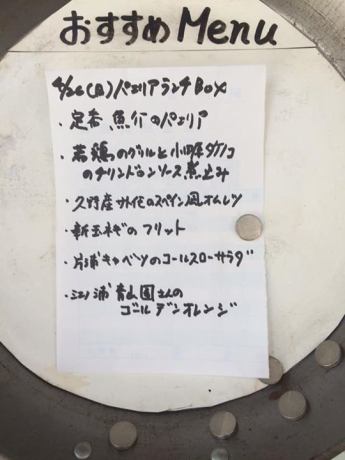 おすすめ Menu
4/26(日)パエリアランチBOX
・定番 魚介のパエリア
・若鶏のグリルと小田原タケノコ
のチリンドロンソース煮込み
・久野産 のスペイン風オムレツ
・新玉ネギのフリット
・片浦キャベツのコールスローサラダ
・江ノ浦 青山園さんの
ゴールデンオレンジ